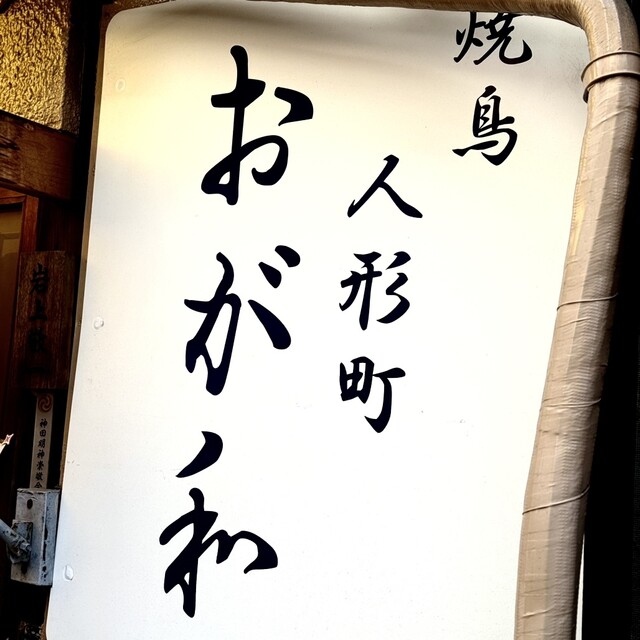 焼鳥
人形町
おがノ和
神田明神崇敬会